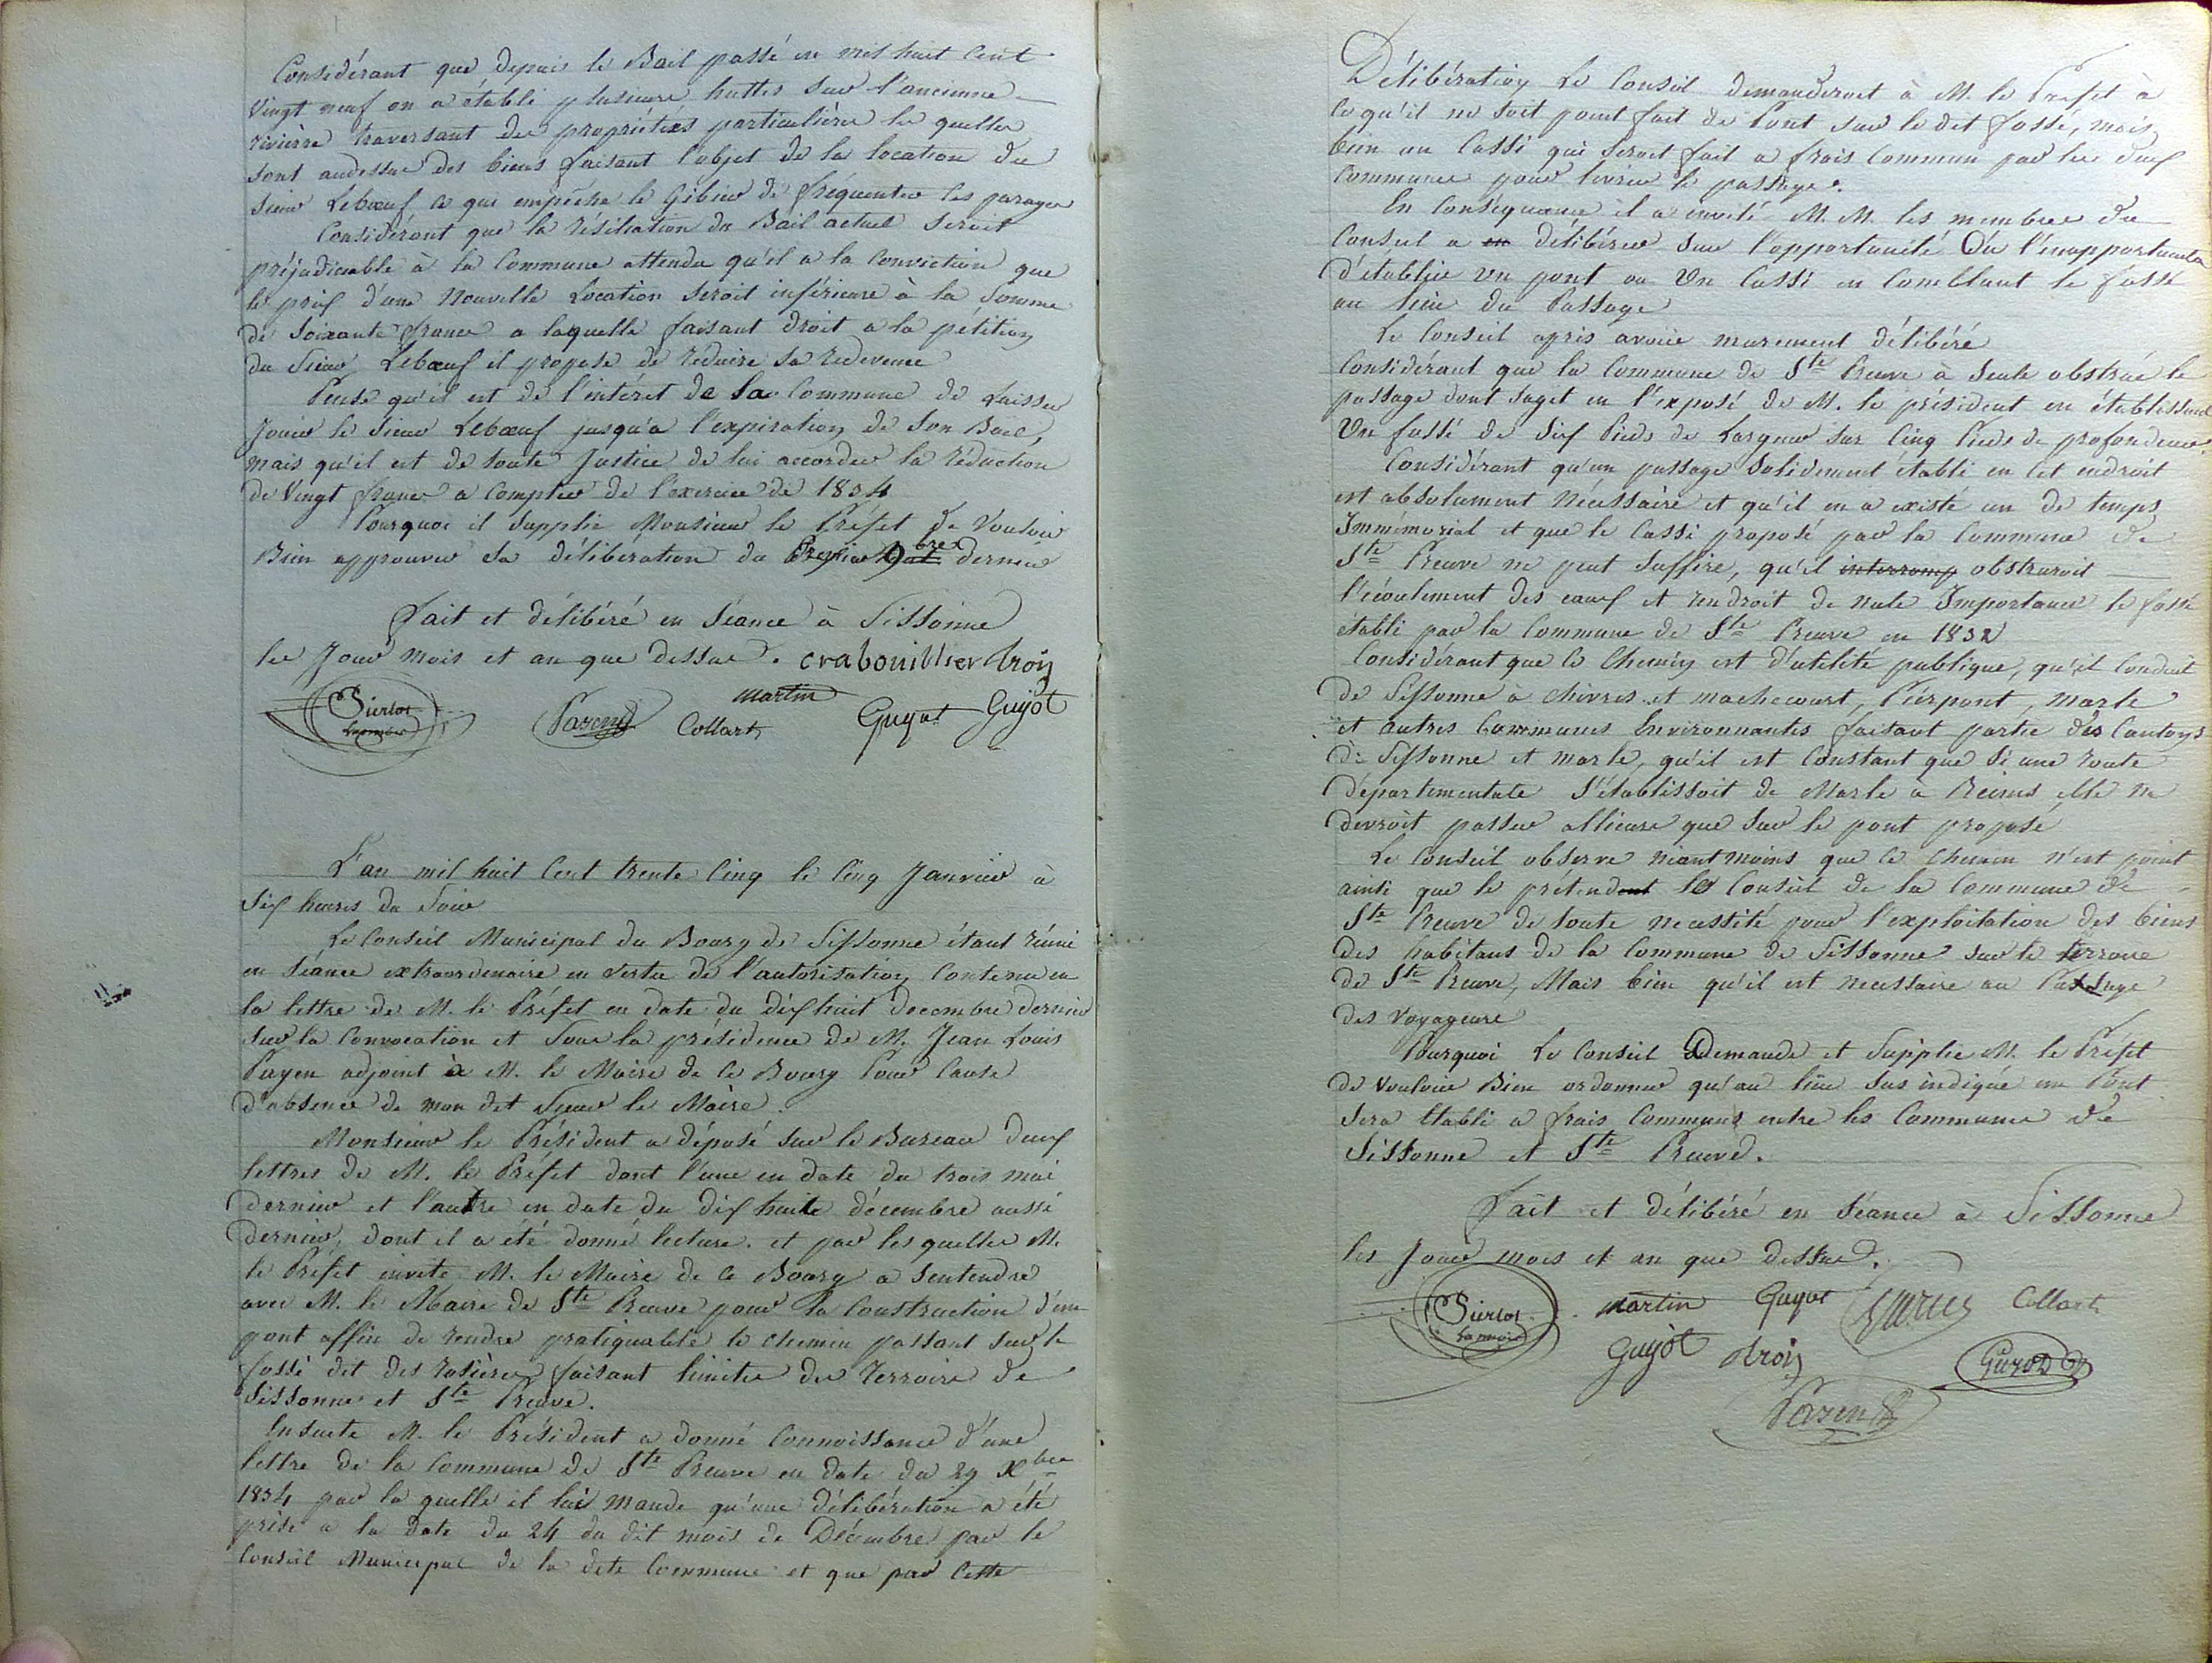 Considérant que depuis le Bail passé en mil huit Cent
Vingt neuf on a établi plusieurs huttes sur l'ancienne
rivière traversant des propriétés particulières les quelles
sont audessus des biens faisant l'objet de la location du
Sieur Lebœuf ce qui empêche le Gibier de fréquenter les parages
Considérant que la résiliation du Bail actuel seroit
préjudiciable à la Commune attendu qu'il a la Conviction que
le prix d'une Nouvelle Location seroit inférieure à la Somme
de Soixante francs a laquelle faisant droit a la pétition
du Sieur Lebœuf il propose de réduire sa redevence
Pense qu'il est de l'intéret de la Commune de Laisser
Jouir le Sieur Lebœuf jusqu'a l'expiration de Son Bail,
mais qu'il est de toute Justice de lui accorder la réduction
de Vingt francs a Compter de l'exercice de 1834
Pourquoi il Supplie Monsieur le Préfet de Vouloir
Bien approuver sa délibération du Premier 9bre dernier
Fait et délibéré en Séance à Sissonne
les Jour mois et an que dessus. crabouillier droin
martin
Sierlot Parent Collart Guyot Guyot
L'an mil huit Cent trente Cinq le Cinq Janvier à
Six heures du Soir
Le Conseil Municipal du Bourg de Sissonne étant réuni
en Séance extraordinaire en vertu de l'autorisation Contenue en
la lettre de M. le Préfet en date du dix huit decembre dernier
sur la Convocation et Sous la présidence de M. Jean Louis
Payen adjoint à M. le Maire de ce Bourg Pour Cause
d'absence de mon dit Sieur le Maire.
Monsieur le Président a déposé sur le Bureau deux
lettres de M. le Préfet dont l'une en date du trois mai
dernier et l'autre en date du dix huite décembre aussi
dernier, dont il a été donné lecture. et par les quelles M.
le Préfet invite M. le Maire de ce Bourg a Sentendre
avec M. le Maire de Ste Preuve pour la Construction d'un
pont affin de rendre pratiquable le chemin passant sur le
fossé dit des rosières faisant limites des Terroirs de
Sissonne et Ste Preuve.
Ensuite M. le Président a donné Connoissance d'une
lettre de la Commune de Ste Preuve en date du 29 Xbre
1834 par la quelle il lui mande qu'une délibération a été
prise a la date du 24 du dit mois de Décembre par le
Conseil Municipal de la dite Commune et que par Cette
Délibération Le Conseil demanderoit à M. le Préfet à
Ce qu'il ne soit point fait de Pont sur le dit fossé, mais
bien un Cassi qui seroit fait a frais Commun par les deux
Communes pour livrer le passage.
En Conséquence il a invité M. M. les membres du
Conseil a en délibérer sur l'opportunité Ou l'inopportunité
d'établir un pont ou Un Cassi en Comblant le fossé
au lieu du Passage
Le Conseil après avoir murement délibéré
Considérant que la Commune de Ste Preuve à Seule obstrué le
passage dont sagit en l'exposé de M. le président en établissant
Un fossé de Six Pieds de Largeur sur Cinq Pieds de profondeur.
Considérant qu'un passage Solidement établi en Cet endroit
est absolument Nécessaire et qu'il en a existe un de temps
Immémorial et que le Cassi proposé par la Commune de
Ste Preuve ne peut Suffire, qu'il interromp obstrueroit
l'écoulement des eaux et rendroit de nule Importance le fossé
établi par la Commune de Ste Preuve en 1832
Considérant que ce Chemin est d'utilité publique, qu'il Conduit
de Sissonne à Chivres et machecourt, Pierpont, Marle
et autres Communes Environnantes faisant partie des Cantons
de Sissonne et marle, qu'il est Constant que Si une route
départementale S'établissoit de Marle à Reims elle ne
devroit passer allieurs que sur le pont proposé
Le Conseil observe néantmoins que ce Chemin n'est point
ainsi que le prétendent le Conseil de la Commune de
Ste Preuve de toute necessité pour l'exploitation des biens
des habitans de la Commune de Sissonne sur le terroire
de Ste Preuve, Mais bien qu'il est necessaire au Passage
des Voyageurs
Pourquoi Le Conseil Demande et Supplie M. le Préfet
de Vouloir Bien ordonner qu'au lieu sus indiqué un Pont
sera Etabli a frais Communs entre les Communes de
Sissonne et Ste Preuve.
Fait et délibéré en Séance à Sissonne
les Jour mois et an que dessus.
Sierlot martin Guyot Collart
Guyot droin Guyot
Parent